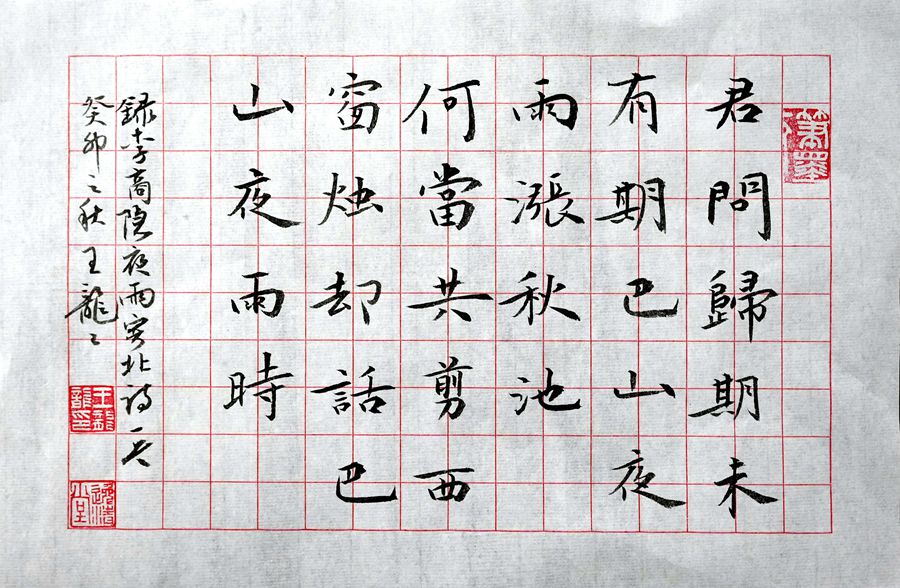 君問歸期未
有期巴山夜
雨漲秋池
何當共剪西
窗烛却話巴
山夜雨時
録李商隐夜雨寄北诗一首
癸卯之秋王龍〻
筆墨
王龍龍印